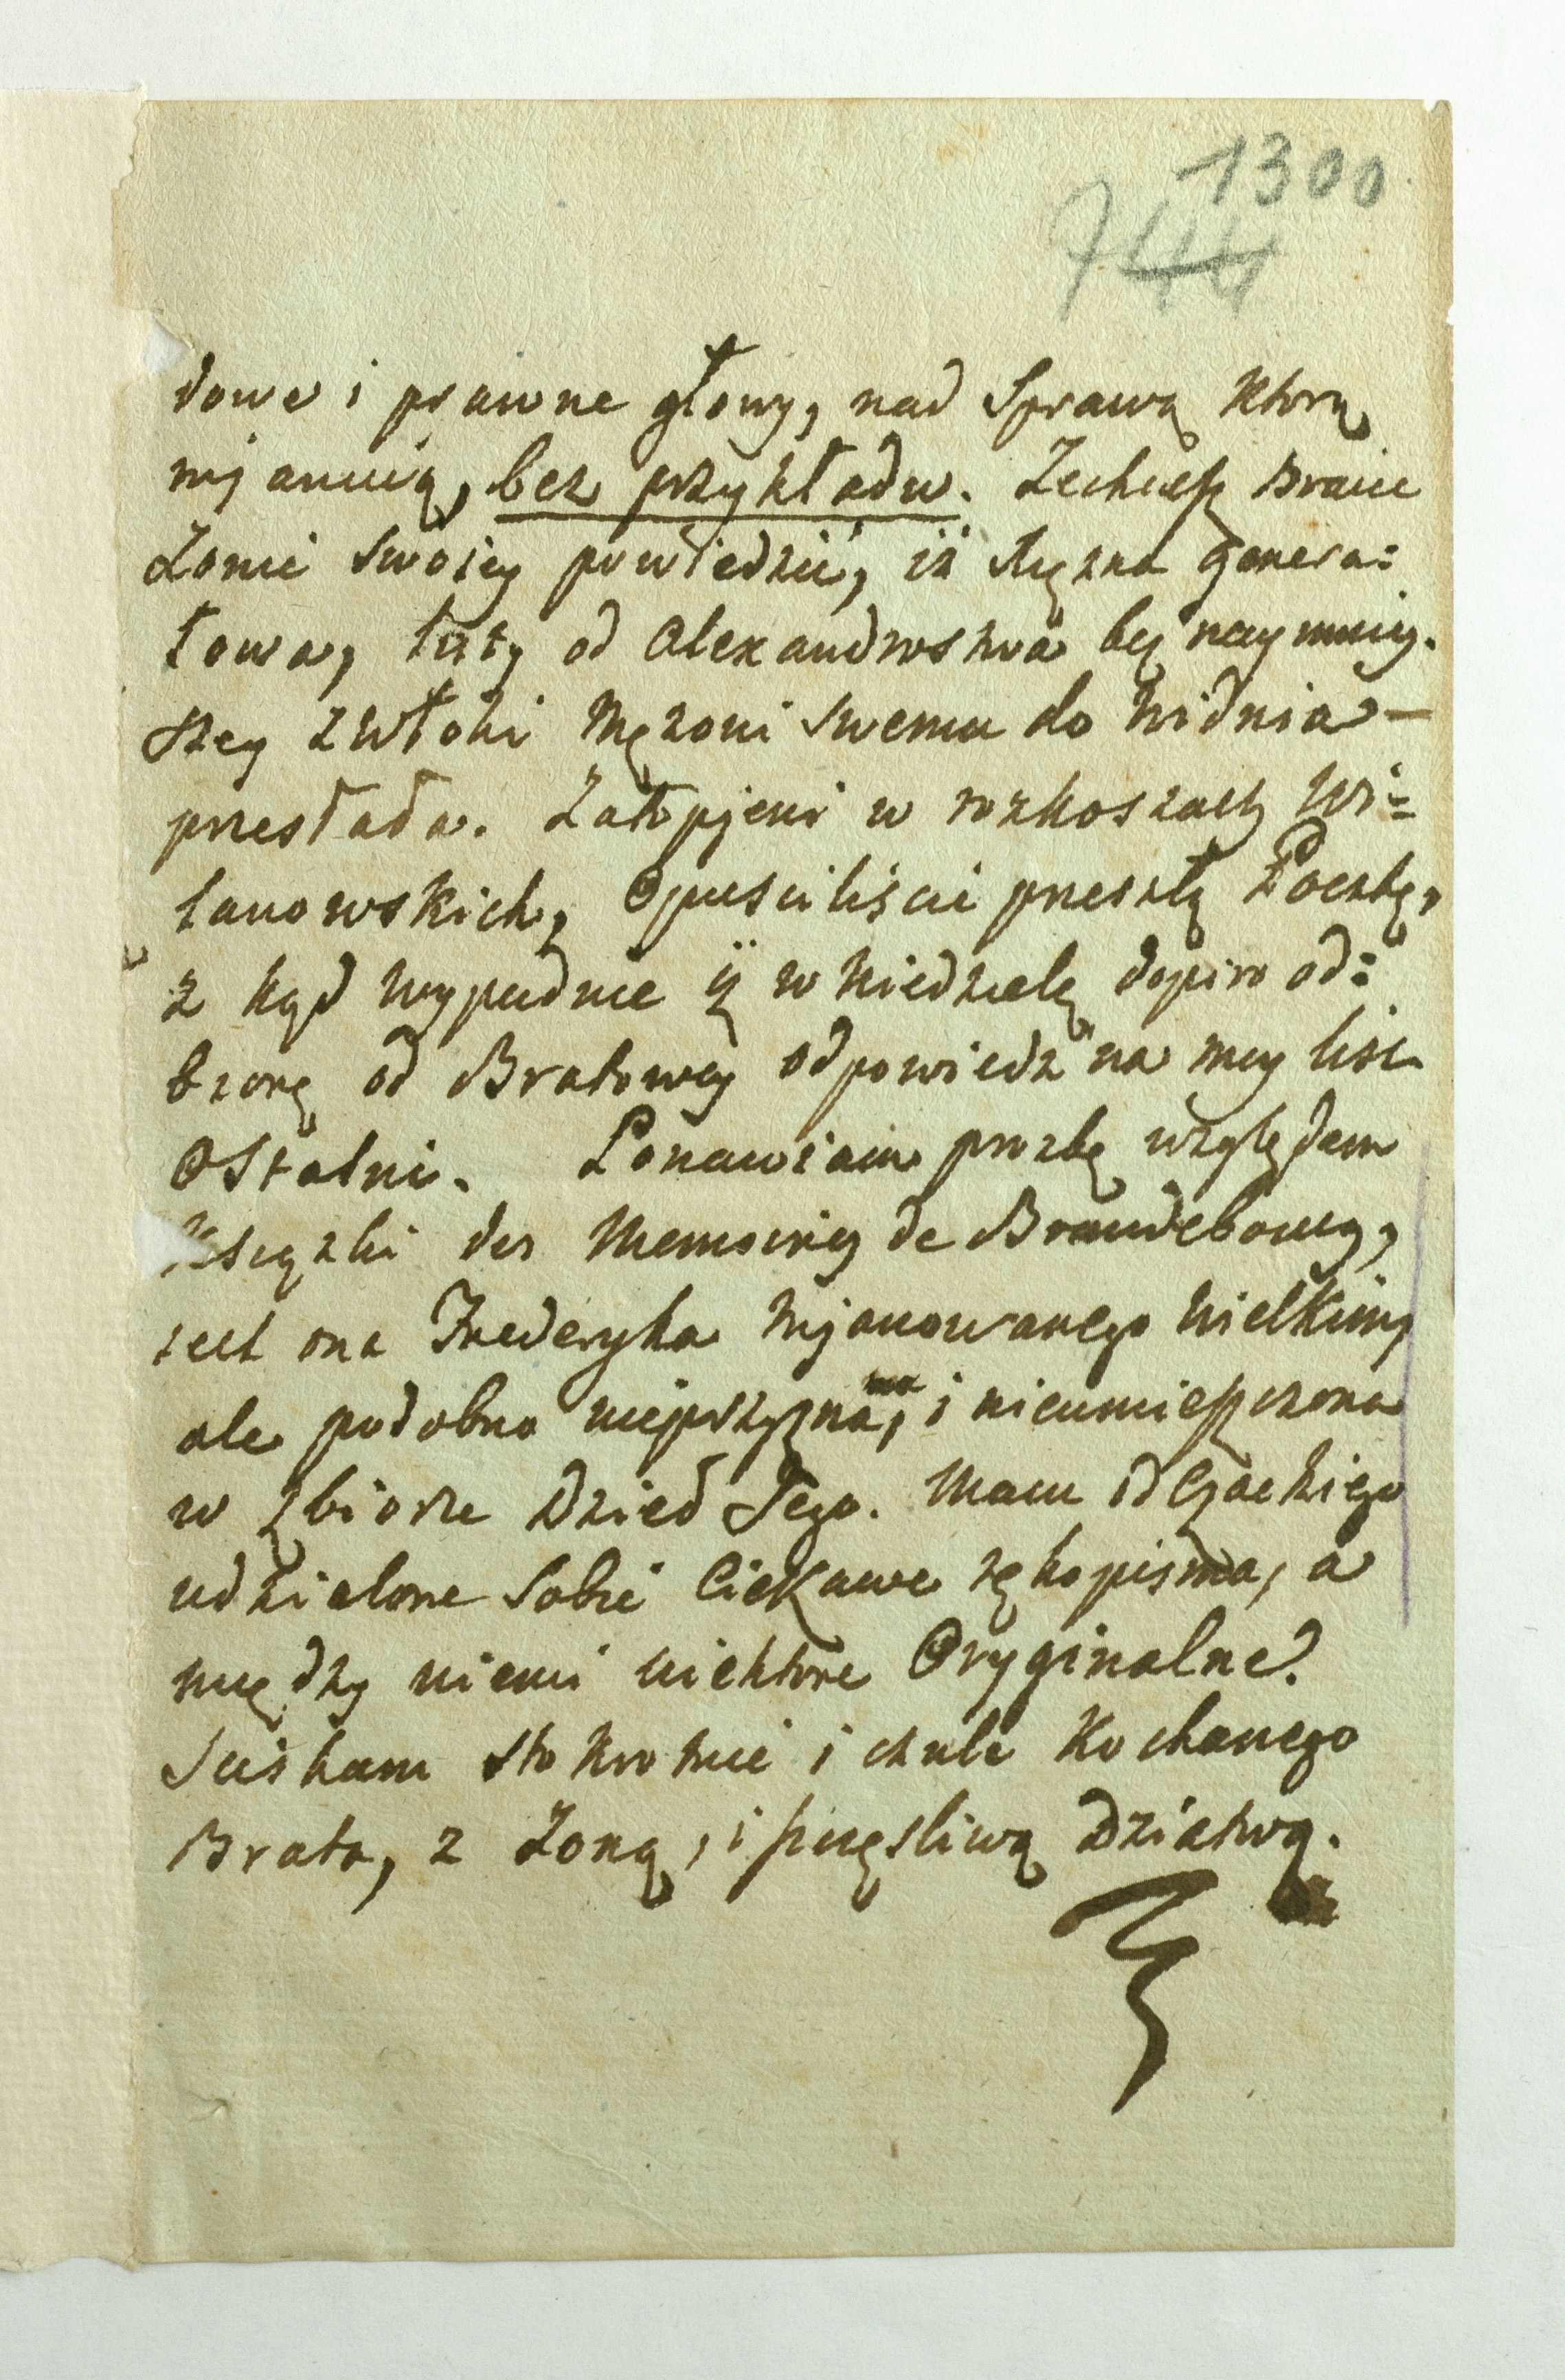 1300
744
dowe i prawne głowy, nad Sprawą ktorą
mjanuią, bez przykładu. Zechcesz Bracie
Żonie Swoiey powiedzić, iż Xiężna Genera:
łowa, listy od Alexandrostwa bez naymniey.
szey zwłoki Mężowi swemu do Widnia —
przesłała. Zatopjeni w rozkoszach Wi:
lanowskich, Opusciliscie przeszłą Pocztę,
z kąd wypadnie iż w Niedzielę dopiro od:
biorę od Bratowey odpowiedz na mey list
Ostatni. Ponawiam prozbę względem
Książki des Memoires de Brandebourg,
iest ona Frederyka mjanowanego Wielkim,
ale podobno nieprzyznana, i nieumieszczona
w Zbiorze Dzieł Jego. Mam od Czackiego
udzielone Sobie Ciekawe rękopisma, a
między niemi niektore Oryginalne.
Sciskam stokrotnie i czule Kochanego
Brata, z Żoną, i szczęsliwą Dziatwą.